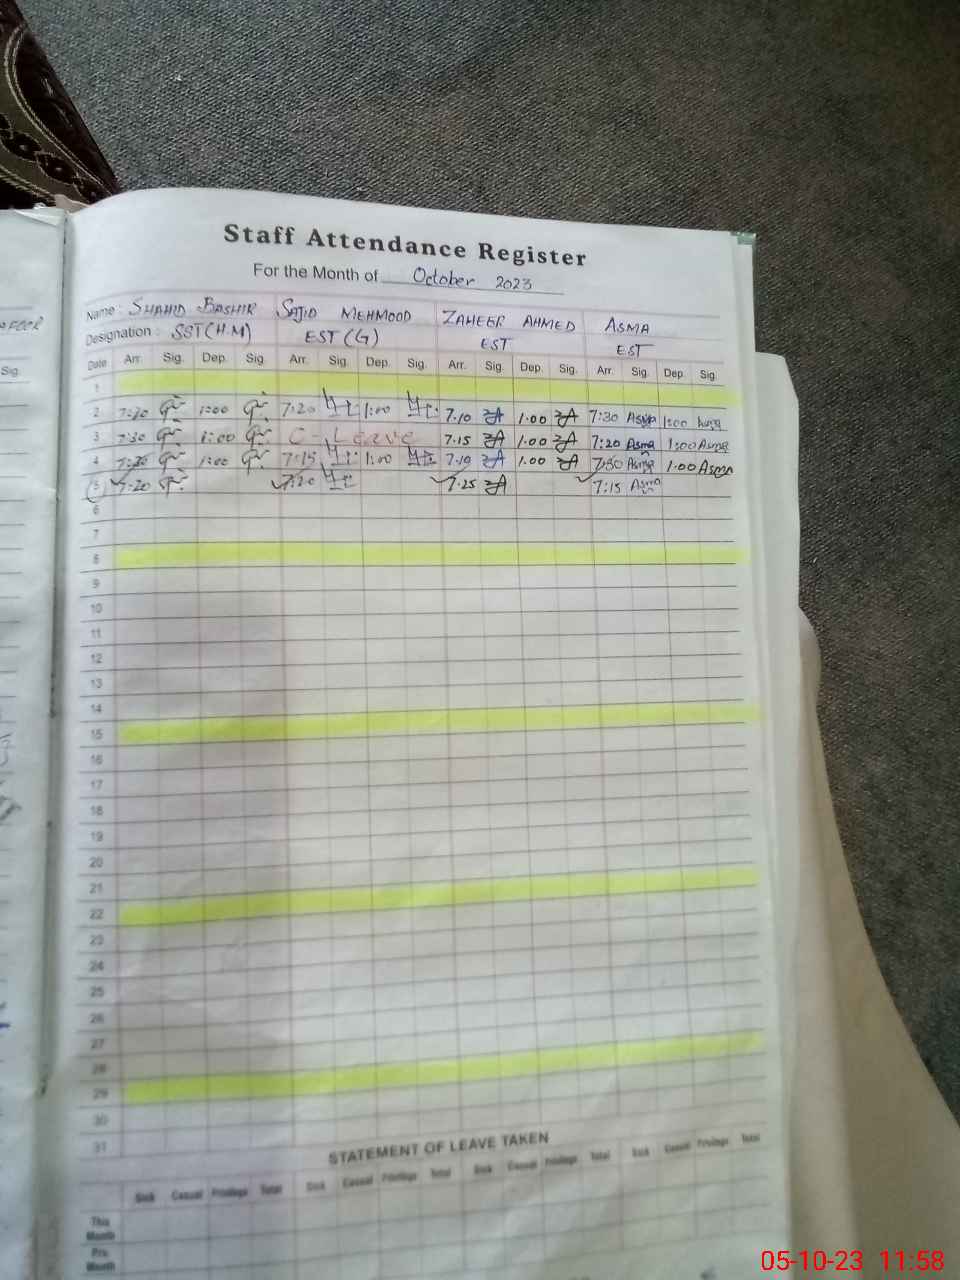 Staff Attendance Register
For the Month of October 2023
Name : SHAHID BASHIR SAJID MEHMOOD ZAHEER AHMED ASMA
Designation : SST(H.M) EST (G) EST EST
Sig.
Date Arr. Sig. Dep. Sig. Arr. Sig. Dep. Sig. Arr. Sig. Dep. Sig. Arr. Sig. Dep. Sig.
1
2 1:00 7:20 1:00 7.10 1.00 7:30 Asma 1:00
3 7:30 1:00 C-Leave 7.15 1.00 7:20 Asma 1:00 Asma
4 1:00 7:15 1:00 7.10 1.00 Asma 1.00 Asma
5 7:20 7:20 7.25 7:15 Asma
6
7
8
9
10
11
12
13
14
15
16
17
18
19
20
21
22
23
24
25
26
27
28
29
30
31
STATEMENT OF LEAVE TAKEN
Sick Casual Privilege Total Sick Casual Privilege Total Sick Casual Privilege Total Sick Casual Privilege Total
This Month
Pre. Month
05-10-23 11:58